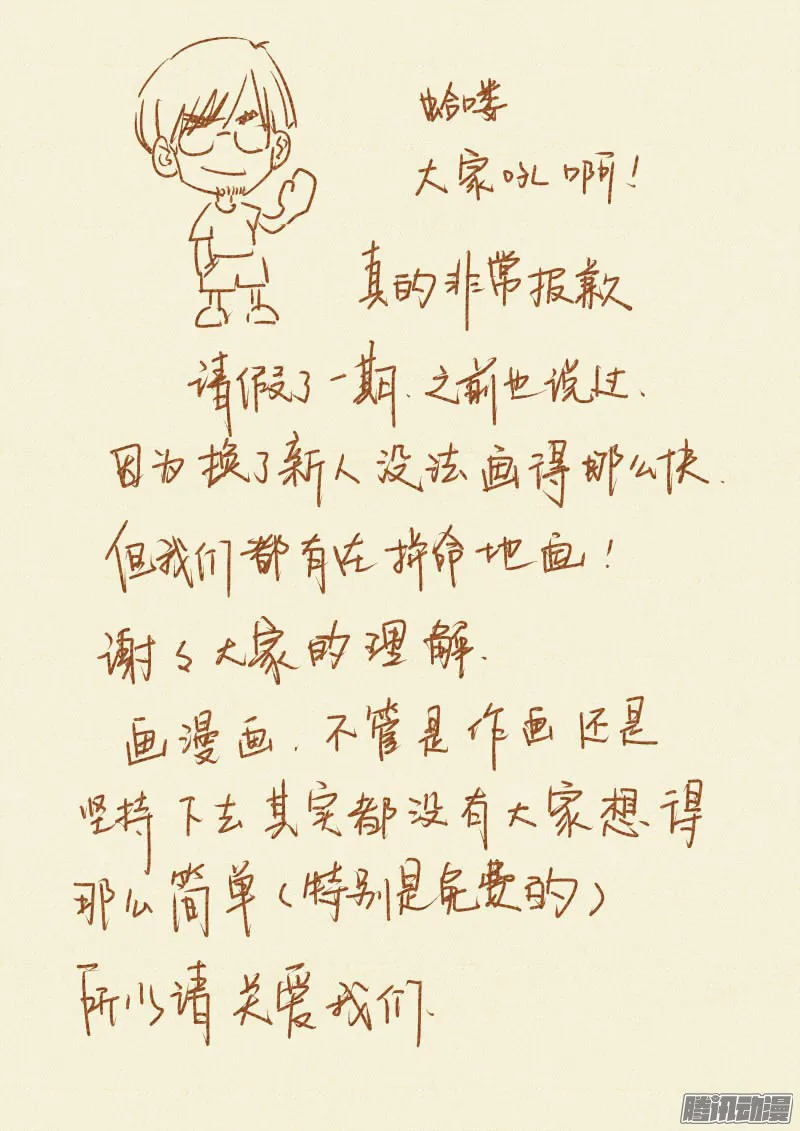 哈喽
大家吼啊！
真的非常报歉
请假了一期.之前也说过.
因为换了新人没法画得那么快.
但我们都有在拼命地画！
谢々大家的理解.
画漫画.不管是作画还是
坚持下去其实都没有大家想得
那么简单(特别是免费的)
所以请关爱我们.
腾讯动漫